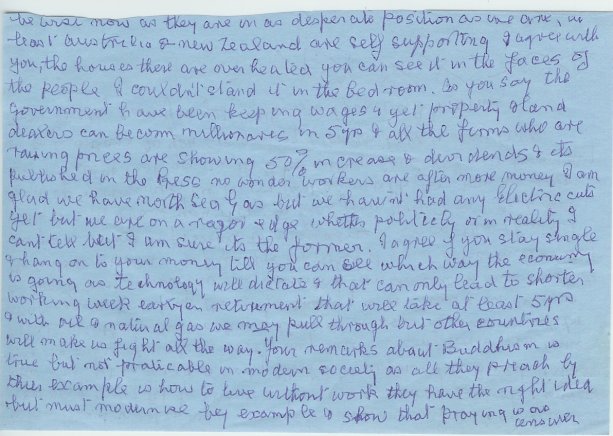 be wise now as they are in as desperate position as we are, in
least Australia & new Zealand are self supporting I agree with
you, the houses there are over heated you can see it in the faces of
the people I couldn't stand it in the bed room. As you say the
government have been keeping wages & yet property & land
dealers can become millionaires in 5 yrs & all the firms who are
raising prices are showing 50% increase & dividends & its
published in the Press no wonder workers are after more money I am
glad we have north Sea Gas but we havn't had any Electric cuts
yet but we are on a razor edge whether politicly or in reality I
cant tell but I am sure its the former. I agree if you stay single
& hang on to your money till you can see which way the economy
is going as technology will dictate & that can only lead to shorter
working week earlyer retirement that will take at least 5 yrs
& with oil & natural gas we may pull through but other countries
will make us fight all the way. Your remarks about Buddhism is
true but not praticable in modern society as all they preach by
their example is how to live without work they have the right idea
but must modernise by example & show that praying is no
answer